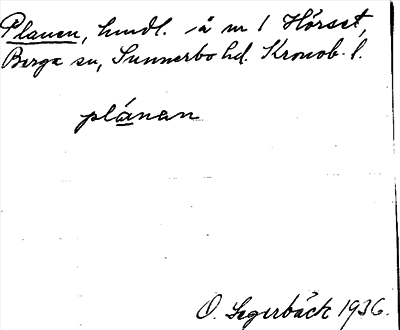 Planen, hmdl. å m 1 Hörset,
Berga sn, Sunnerbo hd. Kronob. l.
plánan
O. Segerbäck 1936.